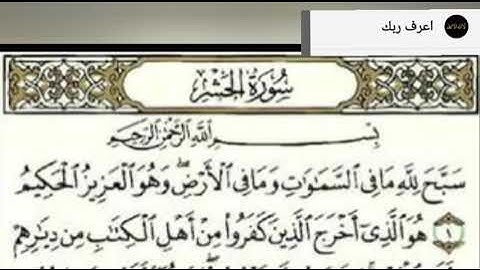 اعرف ربك
سُورَةُ الحَشْرِ
بِسْمِ اللَّهِ الرَّحْمَٰنِ الرَّحِيمِ
سَبَّحَ لِلَّهِ مَا فِي السَّمَاوَاتِ وَمَا فِي الْأَرْضِ ۖ وَهُوَ الْعَزِيزُ الْحَكِيمُ
١ هُوَ الَّذِي أَخْرَجَ الَّذِينَ كَفَرُوا مِنْ أَهْلِ الْكِتَابِ مِن دِيَارِهِمْ